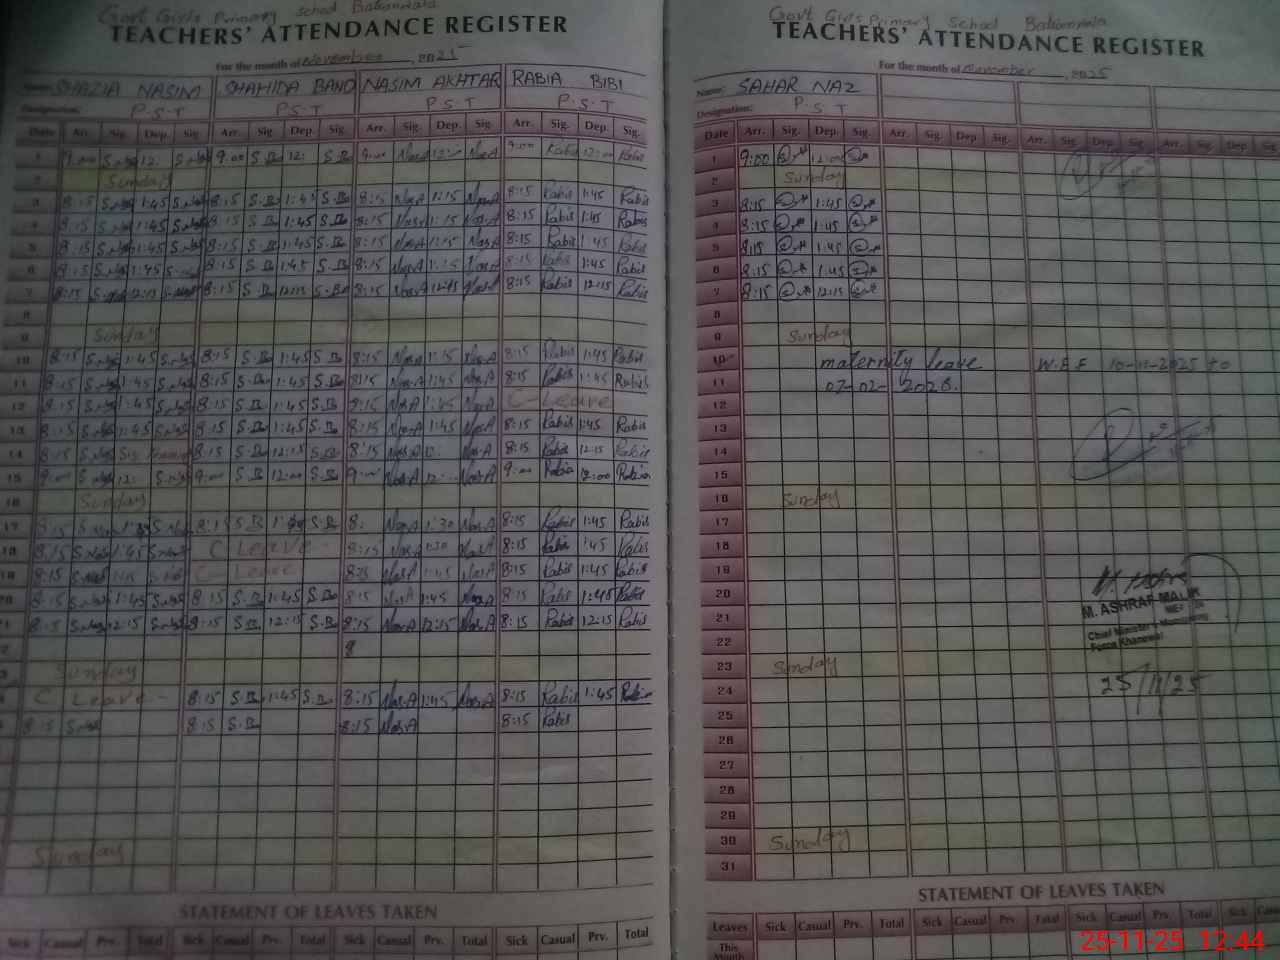 Govt Girls Primary School
TEACHERS' ATTENDANCE REGISTER
For the month of November, 2025
Name: SHAZIA NASIM SHAHIDA BANO NASIM AKHTAR RABIA BIBI
Designation: P.S.T P.S.T P.S.T P.S.T
Date Arr. Sig. Dep. Sig. Arr. Sig. Dep. Sig. Arr. Sig. Dep. Sig. Arr. Sig. Dep. Sig.
1 9:00 12: 9:00 S.B 12: S.B 9:00 Nas.A 12: Nas.A 9:00 Rabia 12:00 Rabia
2 Sunday
3 8:15 1:45 8:15 S.B 1:45 S.B 8:15 Nas.A 1:15 Nas.A 8:15 Rabia 1:45 Rabia
4 8:15 1:45 8:15 S.B 1:45 S.B 8:15 Nas.A 1:15 Nas.A 8:15 Rabia 1:45 Rabia
5 8:15 1:45 8:15 S.B 1:45 S.B 8:15 Nas.A 1:15 Nas.A 8:15 Rabia 1:45 Rabia
6 8:15 1:45 8:15 S.B 1:45 S.B 8:15 Nas.A 1:15 Nas.A 8:15 Rabia 1:45 Rabia
7 8:15 12:15 8:15 S.B 12:15 S.B 8:15 Nas.A 12:45 Nas.A 8:15 Rabia 12:15 Rabia
8
9 Sunday
10 8:15 1:45 8:15 S.B 1:45 S.B 8:15 Nas.A 1:15 Nas.A 8:15 Rabia 1:45 Rabia
11 8:15 1:45 8:15 S.B 1:45 S.B 8:15 Nas.A 1:45 Nas.A 8:15 Rabia 1:45 Rabia
12 8:15 1:45 8:15 S.B 1:45 S.B 8:15 Nas.A 1:45 Nas.A C-Leave
13 8:15 1:45 8:15 S.B 1:45 S.B 8:15 Nas.A 1:45 Nas.A 8:15 Rabia 1:45 Rabia
14 8:15 8:15 S.B 12:15 S.B 8:15 Nas.A Nas.A 8:15 Rabia 12:15 Rabia
15 9:00 12: 9:00 S.B 12:00 S.B 9:00 Nas.A 12: Nas.A 9:00 Rabia 12:00 Rabia
16 Sunday
17 8:15 8:15 S.B S.B 8: Nas.A 1:30 Nas.A 8:15 Rabia 1:45 Rabia
18 8:15 1:45 C Leave - 8:15 Nas.A 1:30 Nas.A 8:15 Rabia 1:45 Rabia
19 8:15 C-Leave 8:15 Nas.A 1:45 Nas.A 8:15 Rabia 1:45 Rabia
20 8:15 1:45 8:15 S.B 1:45 S.B 8:15 Nas.A 1:45 Nas.A 8:15 Rabia 1:45 Rabia
8:15 12:15 8:15 S.B 12:15 S.B 8:15 Nas.A 12:15 Nas.A 8:15 Rabia 12:15 Rabia
8
Sunday
C Leave - 8:15 S.B 1:45 S.B 8:15 Nas.A 1:45 Nas.A 8:15 Rabia 1:45 Rabia
8:15 8:15 S.B 8:15 Nas.A 8:15 Rabia
Sunday
STATEMENT OF LEAVES TAKEN
Sick Casual Prv. Total Sick Casual Prv. Total Sick Casual Prv. Total Sick Casual Prv. Total
Govt Girls Primary School
TEACHERS' ATTENDANCE REGISTER
For the month of November, 2025
Name: SAHAR NAZ
Designation: P.S.T
Date Arr. Sig. Dep. Sig. Arr. Sig. Dep. Sig. Arr. Sig. Dep. Sig. Arr. Sig. Dep. Sig.
1 9:00 12:00
2 Sunday
3 8:15 1:45
4 8:15 1:45
5 8:15 1:45
6 8:15 1:45
7 8:15 12:15
8
9 Sunday
10 maternity leave W.E.F 10-11-2025 to
11 07-02-2026.
12
13
14
15
16 Sunday
17
18
19
20
M. ASHRAF MALIK
21
Chief Minister's Monitoring
22
Force Khanewal
23 Sunday
24 25/11/25
25
26
27
28
29
30 Sunday
31
STATEMENT OF LEAVES TAKEN
Leaves Sick Casual Prv. Total Sick Casual Prv. Total Sick Casual Prv. Total Sick
This Month
25-11-25 12:44